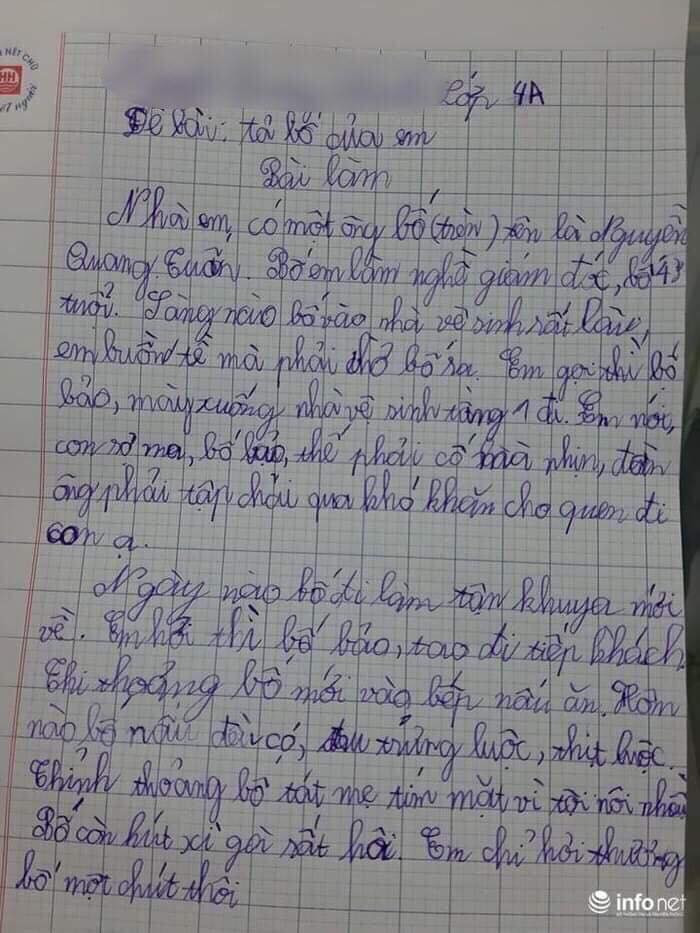 NÉT CHỮ
HH
NẾT NGƯỜI
Lớp 4A
Đề bài: tả bố của em
Bài làm
Nhà em, có một ông bố (trên) tên là Nguyễn
Quang Tuấn. Bố em làm nghề giám đốc, bố 43
tuổi. Sàng nào bố vào nhà vệ sinh rất lâu,
em buồn tè mà phải chờ bố ra. Em gọi thì bố
bảo, mày xuống nhà vệ sinh tầng 1 đi. Em nói,
con sợ ma, bố bảo, thế phải cố mà nhịn, đàn
ông phải tập chải qua khó khăn cho quen đi
con ạ.
Ngày nào bố đi làm tận khuya mới
về. Em hỏi thì bố bảo, tao đi tiếp khách.
Thi thoảng bố mới vào bếp nấu ăn. Hôm
nào bố nấu đều có, trứng luộc, thịt luộc.
Thỉnh thoảng bố tát mẹ tím mặt vì tội nói nhiều
Bố còn hút xì gói rất hôi. Em chỉ hơi thương
bố một chút thôi
infonet